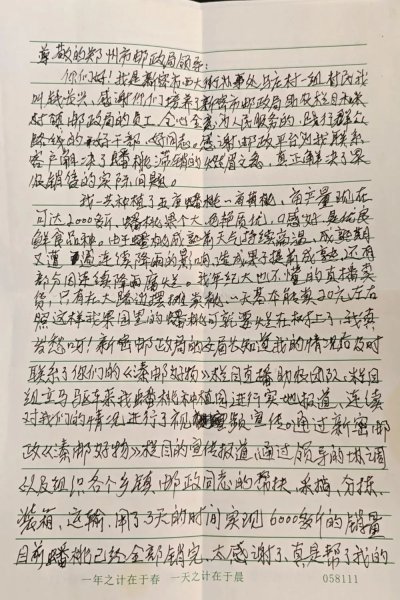 尊敬的郑州市邮政局领导：
你们好！我是新密市西大街办事处马庄村一组村民我
叫钱 ，感谢你们培养了新密市邮政局助农栏目和深
邮政局的员工，全心全意为人民服务的，践行群众
路线的好干部，好同志。感谢邮政平台为我联系
客户解决了蟠桃滞销的燃眉之急，真正解决了果
农销售的实际问题。
我一共种植了五亩蟠桃、 桃，亩产量现在
可达2000多斤，蟠桃果个大，色艳质优，口感好，是优质
鲜食品种。由于蟠桃成熟前天气持续高温，成熟期
又遭 遇连续降雨的影响，造成果子提前成熟，还有
部分因连续降雨腐烂。我年纪大也不懂的直播卖
货，只有在大路边摆摊卖桃，一天基本能卖20元左右
照这样我果园里的蟠桃可就要烂在树上了，我真
发愁呀！新密邮政局的 局长知道我的情况后及时
联系了你们的《溱邮好物》栏目直播助农团队，栏目
组立马驱车来我蟠桃种植园进行实地报道，连续
对我们的情况进行了视频宣传。通过新密邮
政《溱邮好物》栏目的宣传报道，通过领导的协调
以及组织各个乡镇邮政同志的帮扶，采摘、分拣、
装箱、运输，用了3天的时间实现6000多斤的销量
目前蟠桃已经全部销完，太感谢了，真是帮了我的
一年之计在于春 一天之计在于晨
058111